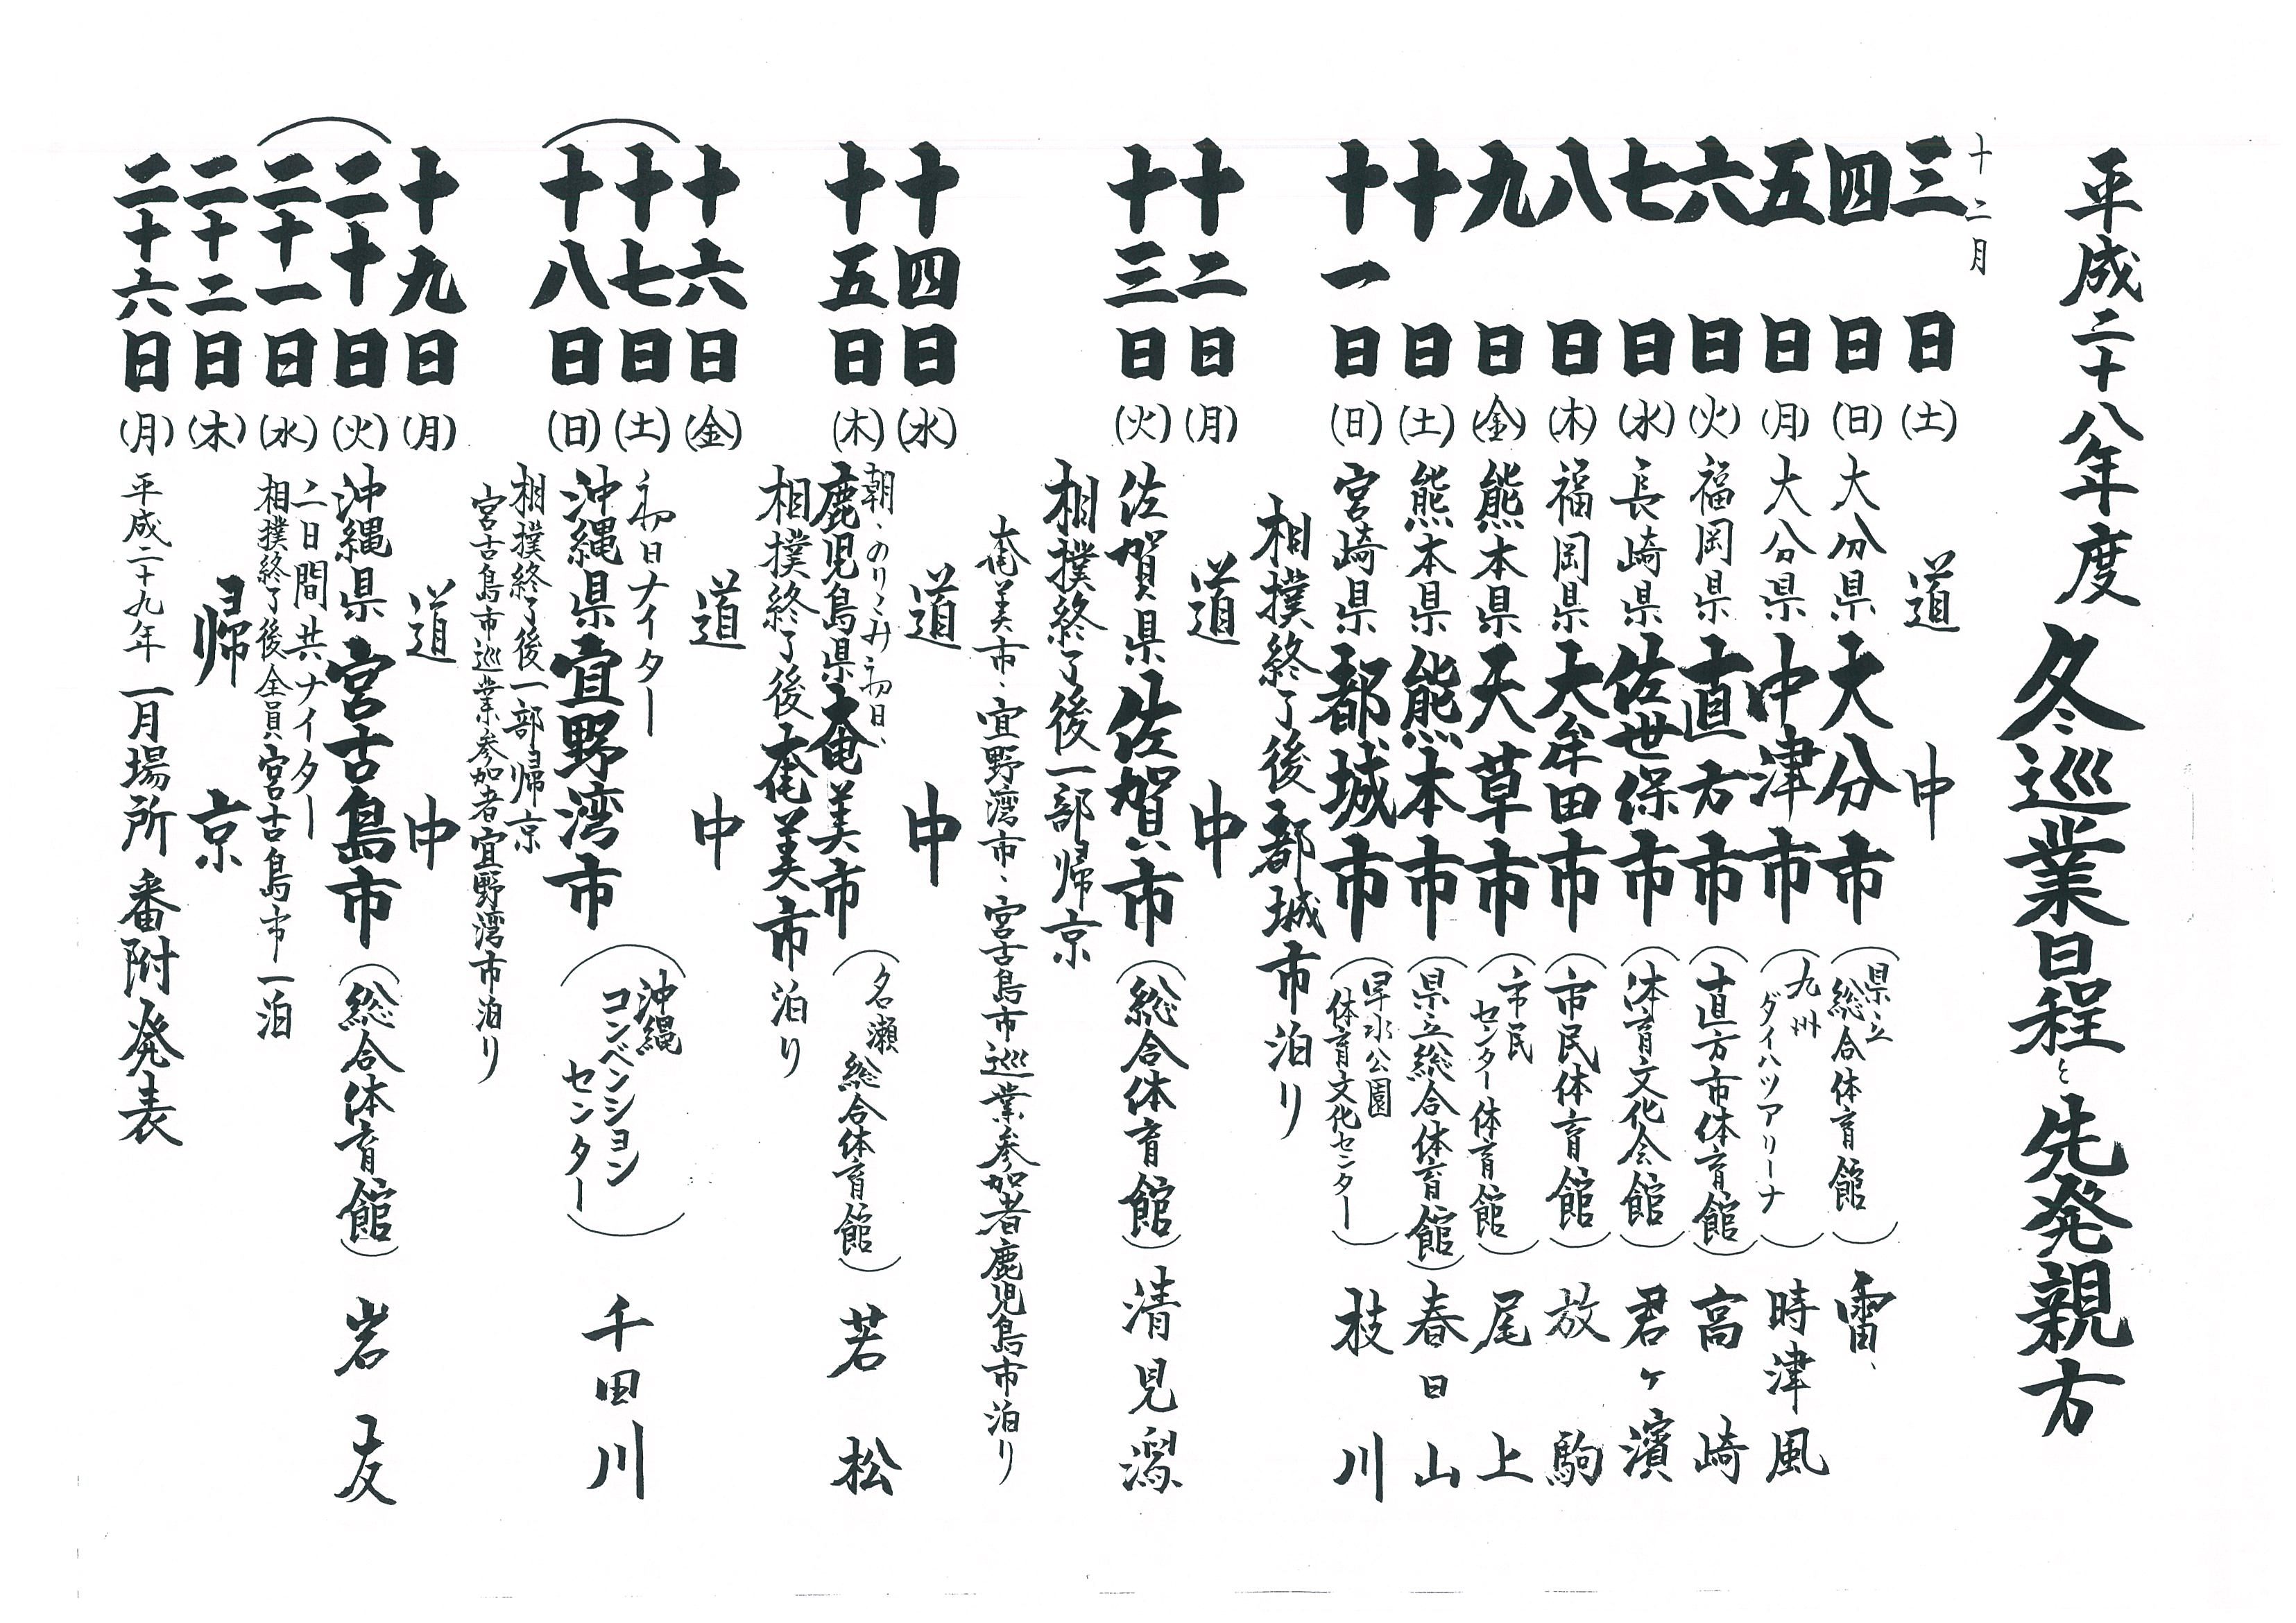 平成二十八年度 冬巡業日程と先発親方
十二月
三日(土) 道中
四日(日) 大分県 大分市 (県立総合体育館) 雷
五日(月) 大分県 中津市 (九州ダイハツアリーナ) 時津風
六日(火) 福岡県 直方市 (直方市体育館) 高崎
七日(水) 長崎県 佐世保市 (体育文化会館) 君ヶ濱
八日(木) 福岡県 大牟田市 (市民体育館) 放駒
九日(金) 熊本県 天草市 (市民センター体育館) 尾上
十日(土) 熊本県 熊本市 (県立総合体育館) 春日山
十一日(日) 宮崎県 都城市 (早水公園体育文化センター) 枝川
相撲終了後 都城市泊り
十二日(月) 道中
十三日(火) 佐賀県 佐賀市 (総合体育館) 清見潟
相撲終了後一部帰京
奄美市、宜野湾市、宮古島市巡業参加者鹿児島市泊り
十四日(水) 道中
朝、のりこみ初日、
十五日(木) 鹿児島県 奄美市 (名瀬総合体育館) 若松
相撲終了後 奄美市泊り
十六日(金) 道中
十七日(土) 初日ナイター
十八日(日) 沖縄県 宜野湾市 (沖縄コンベンションセンター) 千田川
相撲終了後一部帰京
宮古島市巡業参加者宜野湾市泊り
十九日(月) 道中
二十日(火) 沖縄県 宮古島市 (総合体育館) 岩友
二十一日(水) 二日間共ナイター
相撲終了後全員宮古島市一泊
二十二日(木) 帰京
二十六日(月) 平成二十九年 一月場所 番附発表